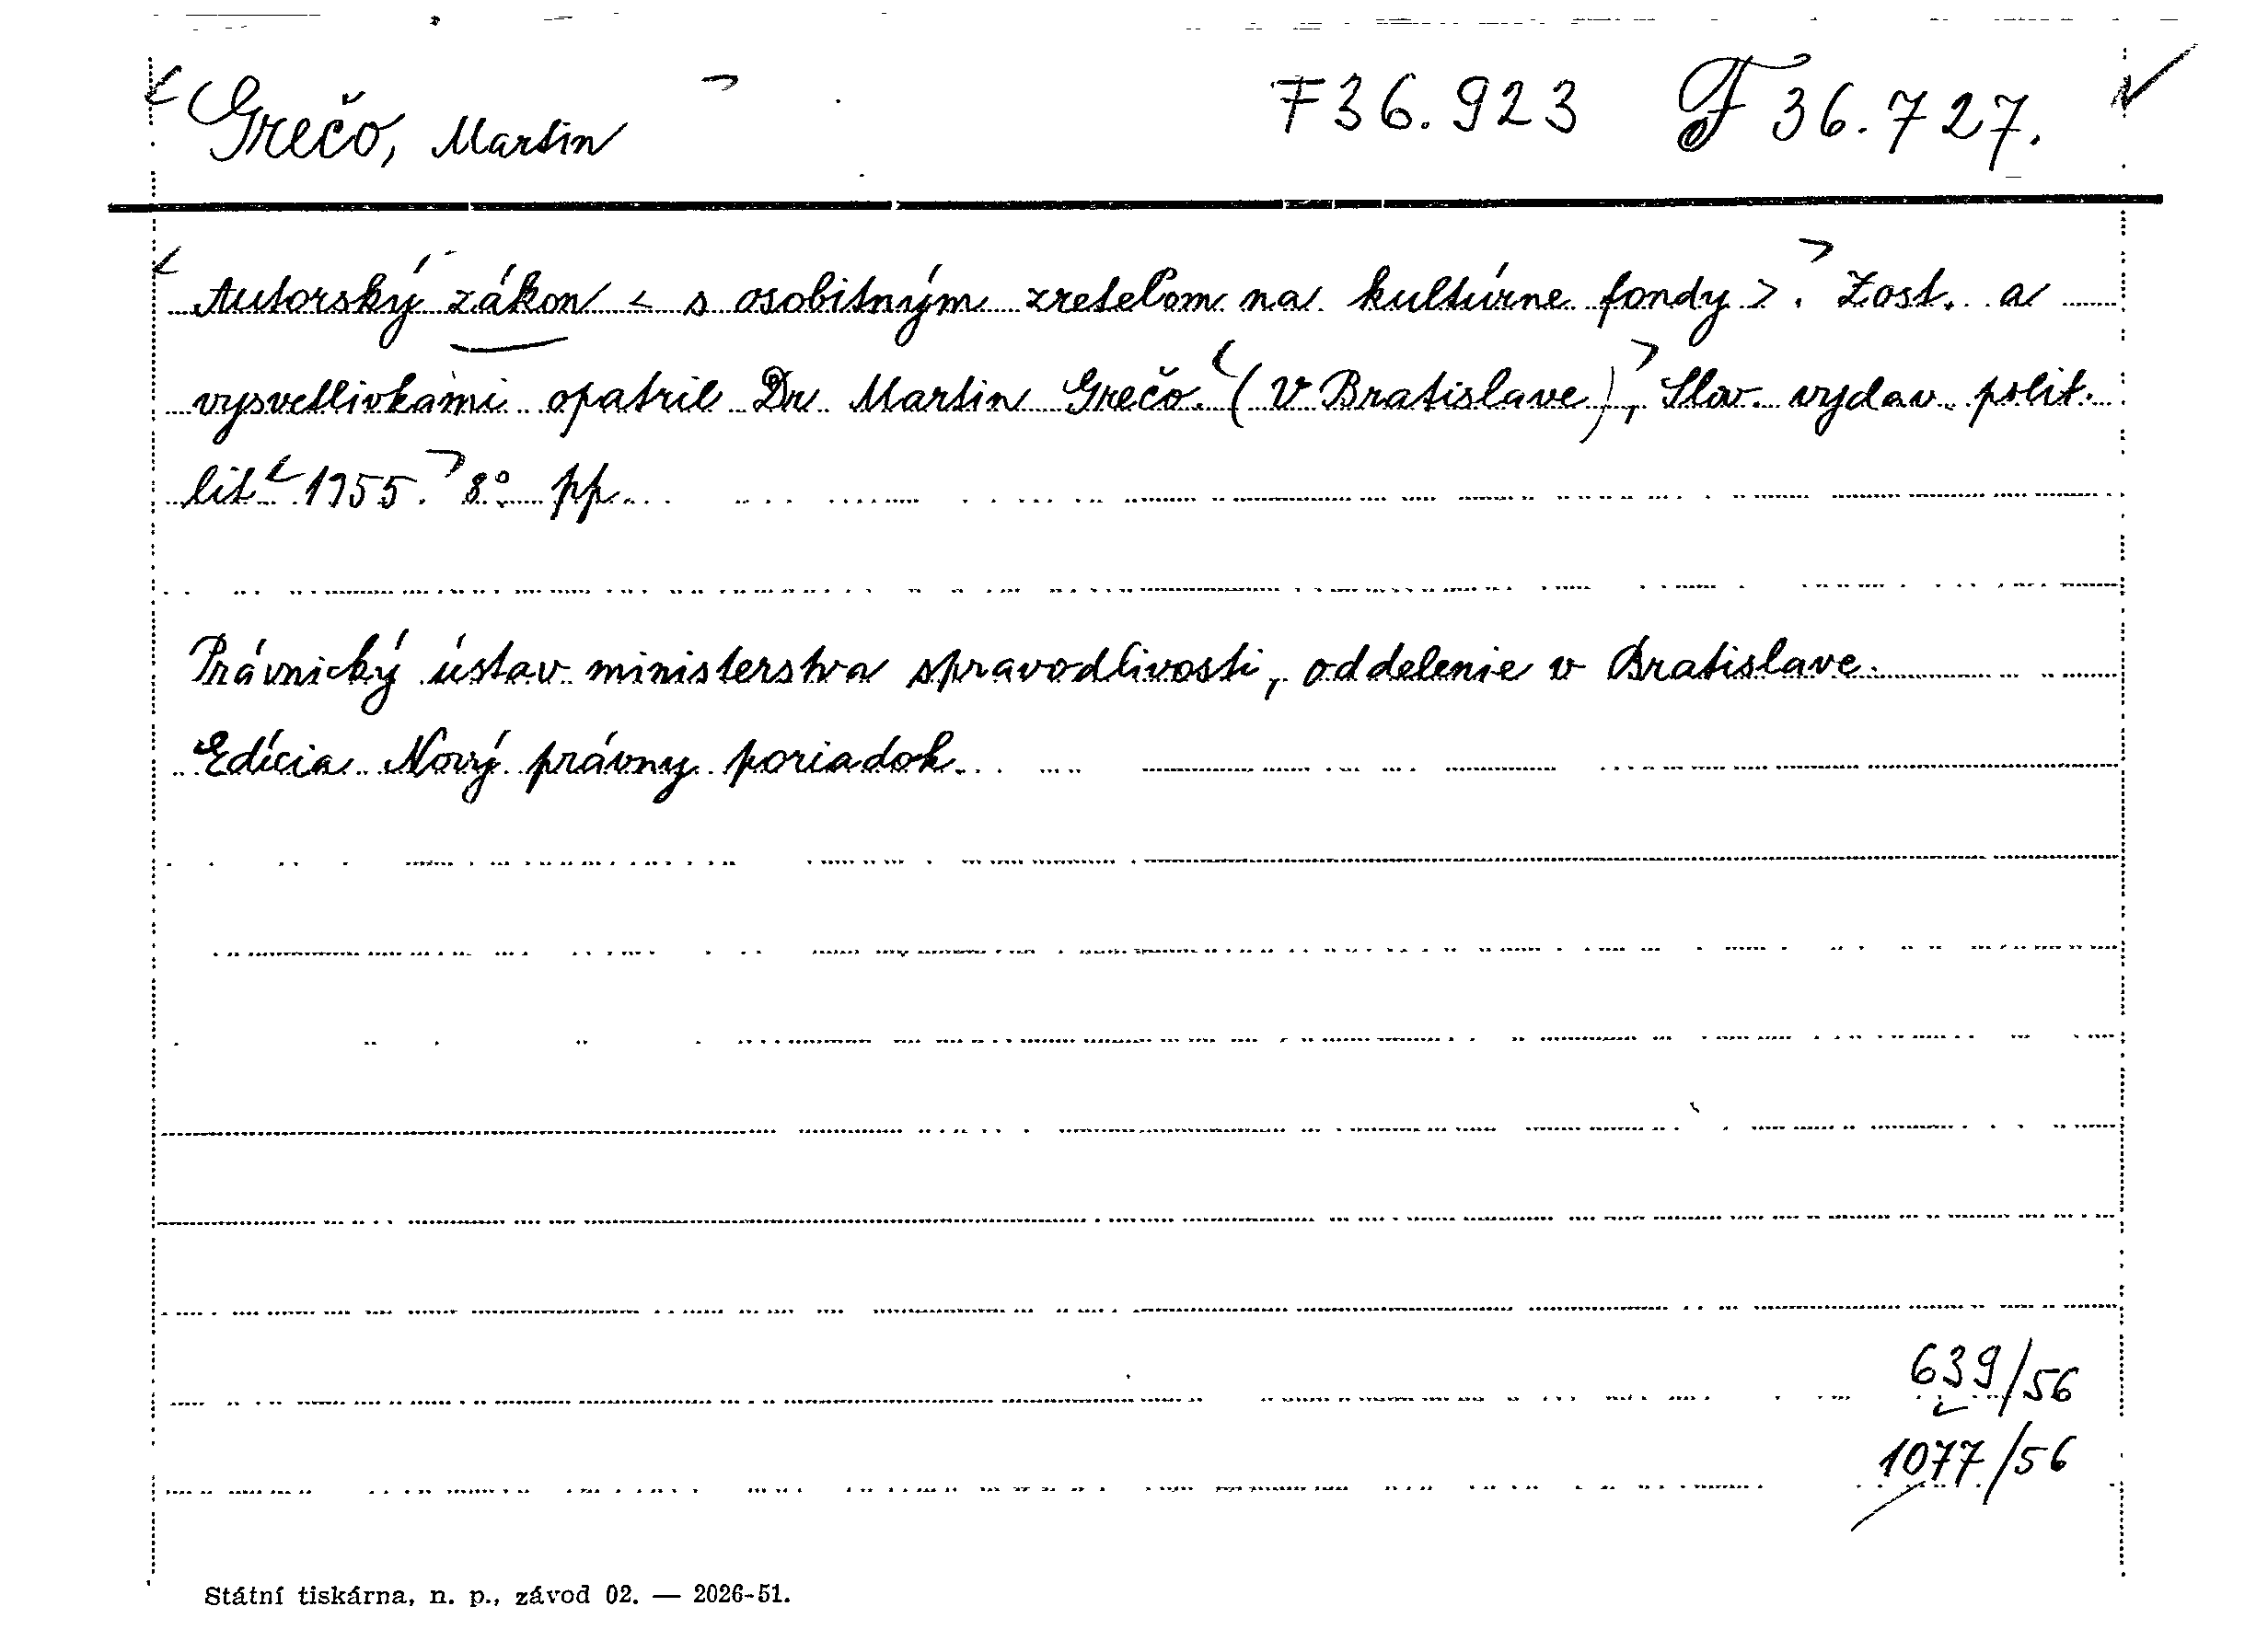 Grečo, Martin F 36.923 F 36.727.
Autorský zákon < s osobitným zreteľom na kultúrne fondy >. Zost. a
vysvetlivkami opatril Dr Martin Grečo. (V Bratislave), Slov. vydav. polit.
lit. 1955. 8° pp.
Právnický ústav ministerstva spravodlivosti, oddelenie v Bratislave.
Edícia Nový právny poriadok.
639/56
1077/56
Státní tiskárna, n. p., závod 02. — 2026-51.